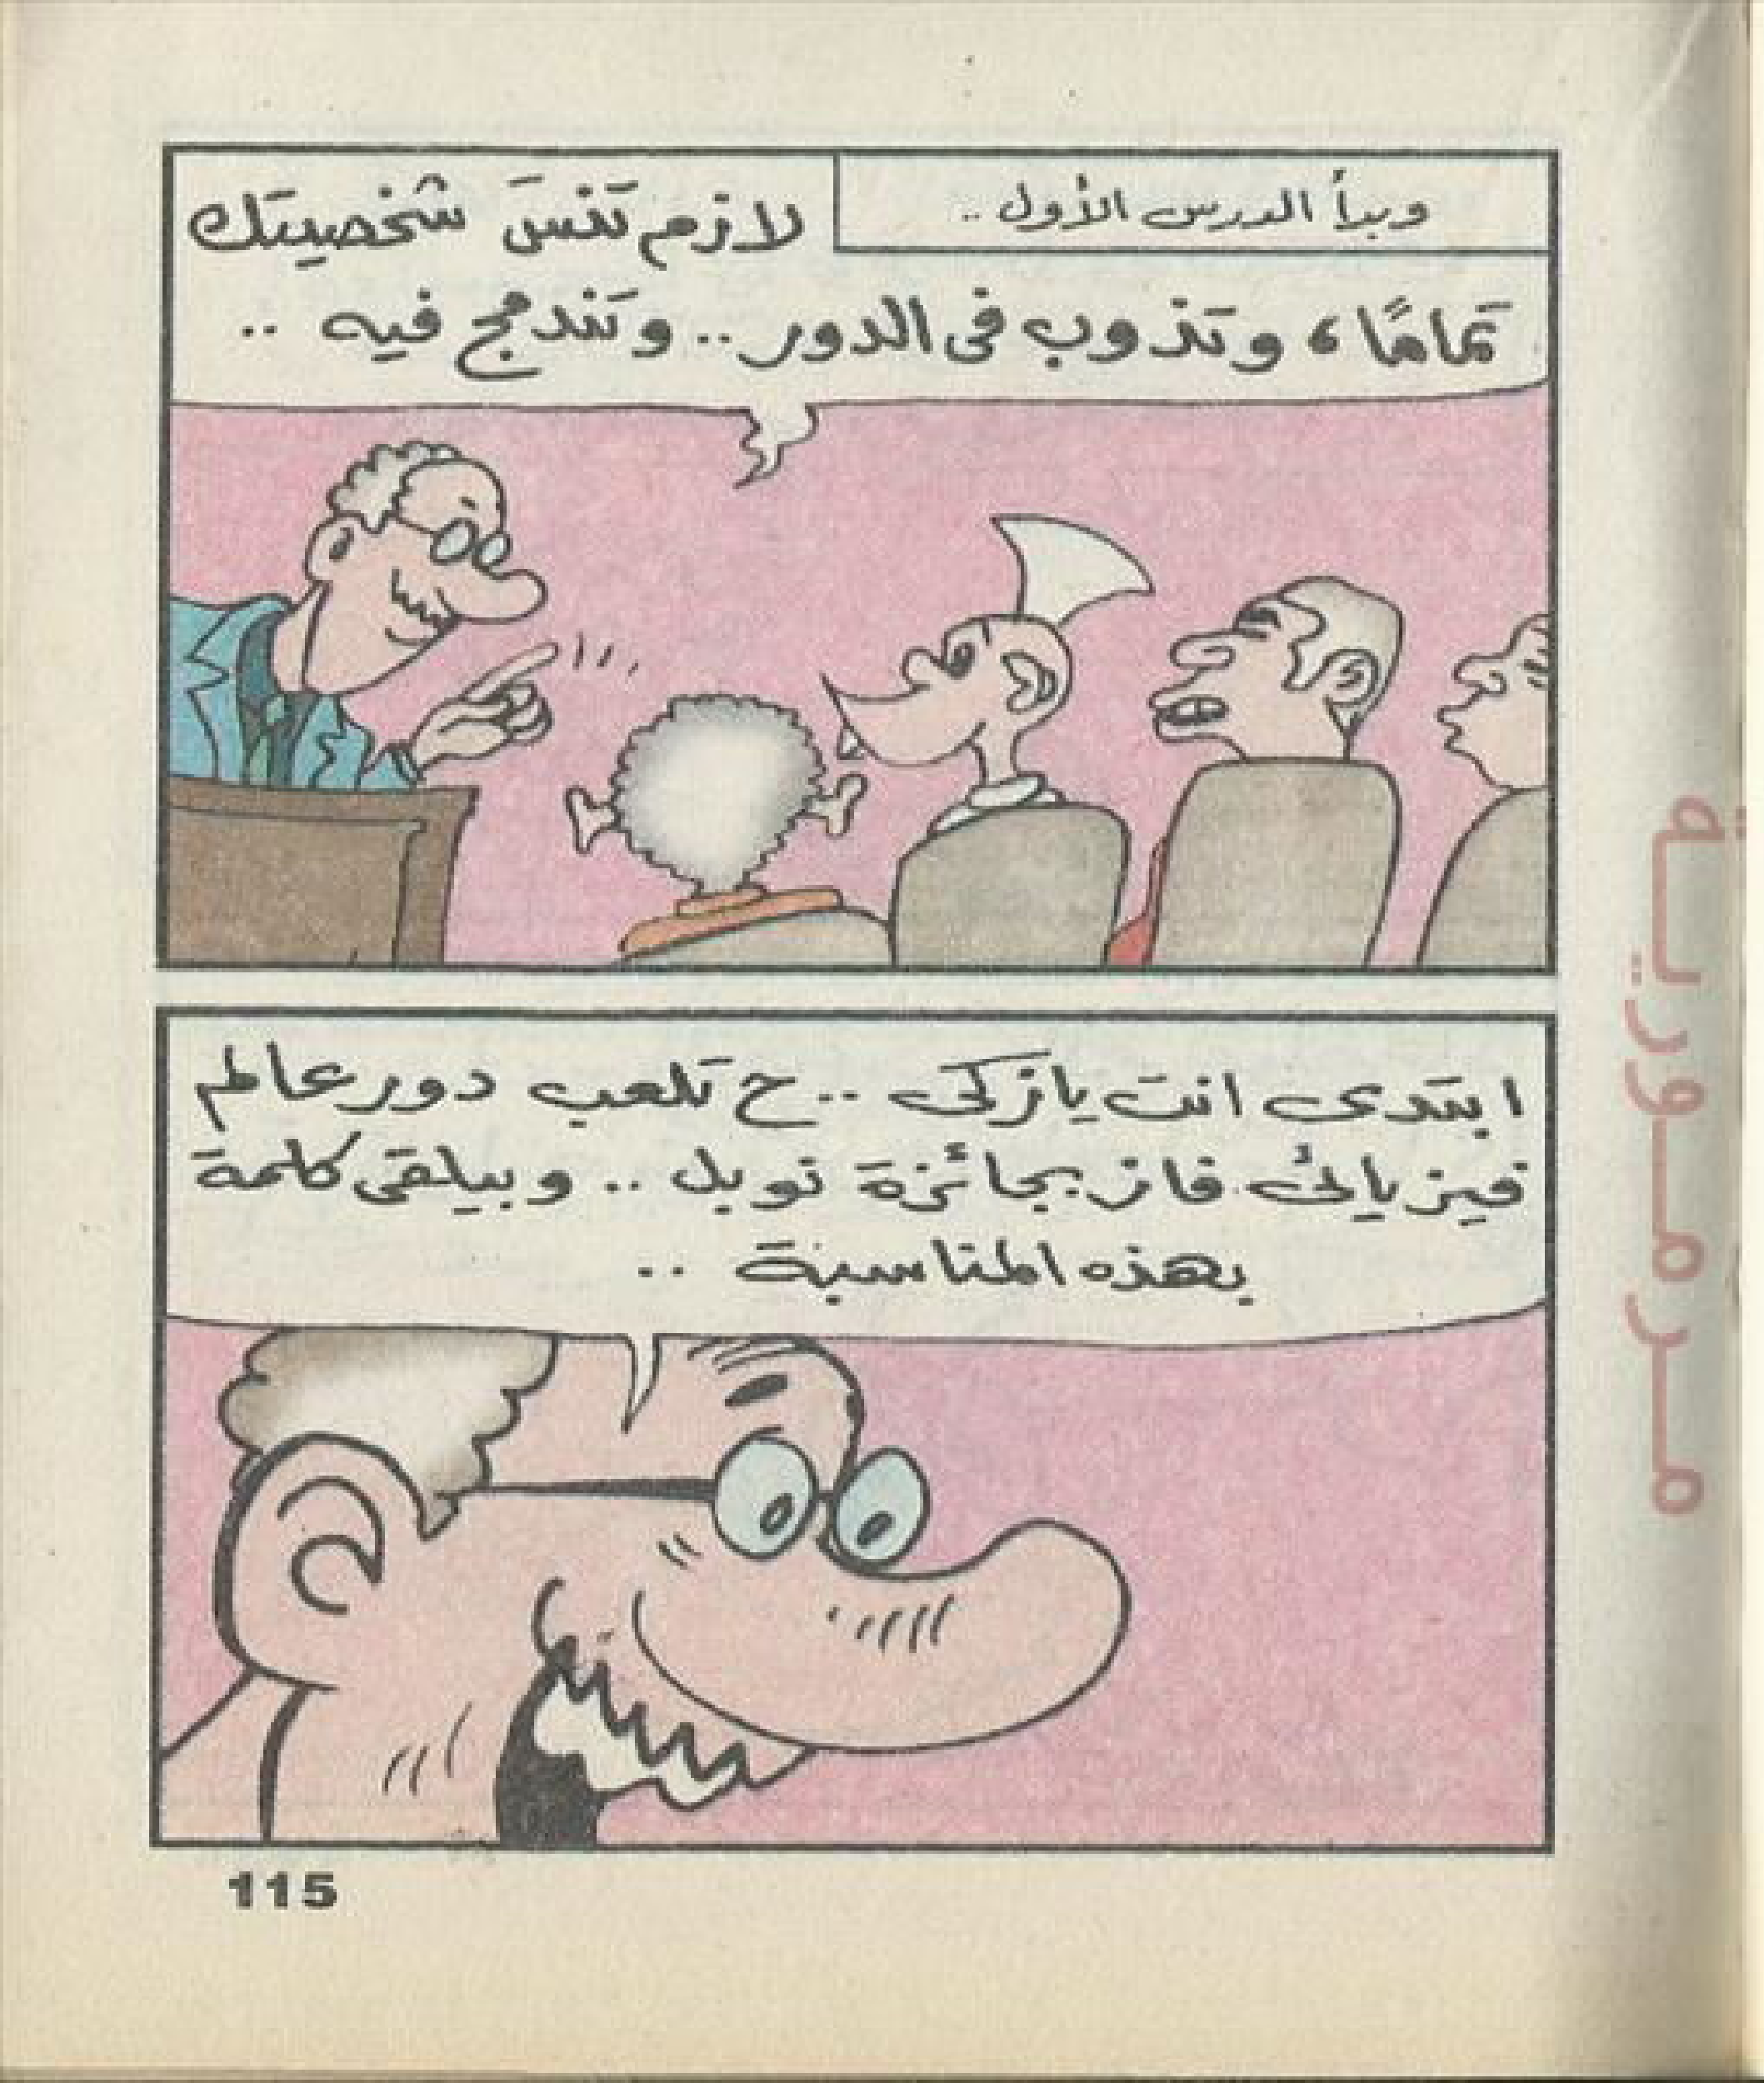 وبدأ الدرس الأول ..
لازم تنسَ شخصيتك
تمامًا، وتذوب فى الدور .. وتندمج فيه ..
ابتدى انت يازكى .. ح تلعب دور عالم
فيزيائى فاز بجائزة نوبل .. وبيلقى كلمة
بهذه المناسبة ..
115
مرمورية